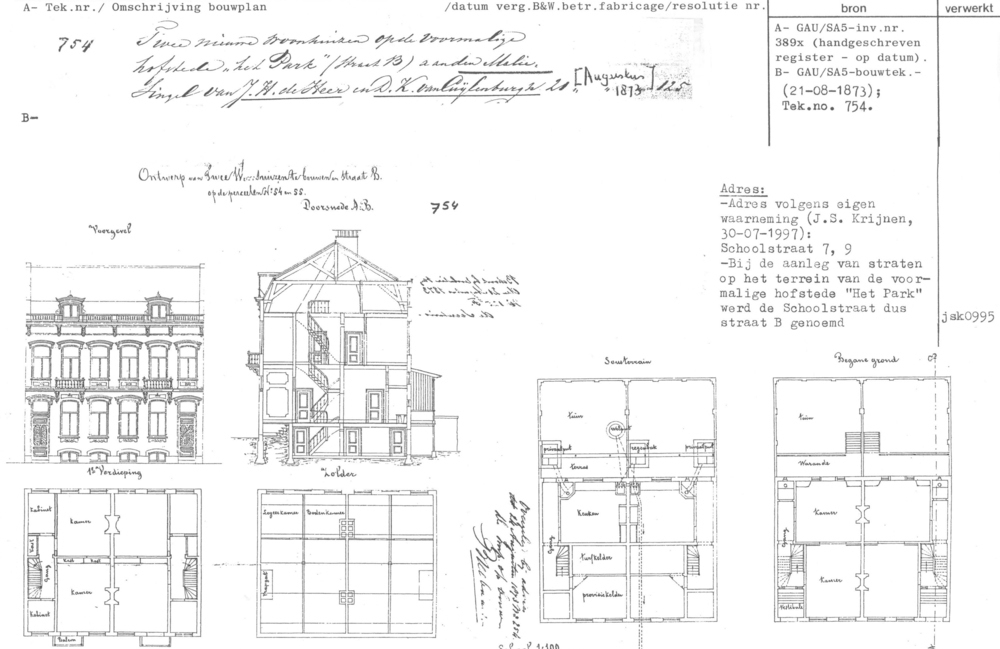 A- Tek.nr./ Omschrijving bouwplan /datum verg.B&W.betr.fabricage/resolutie nr.
bron
verwerkt
754 Twee nieuwe woonhuizen op de voormalige
hofstede „het Park" (Straat B) aan den Malie-
singel van J. H. de Heer en D. K. van Cuijlenburgh 20 [Augustus] 1873 125
A- GAU/SA5-inv.nr.
389x (handgeschreven
register - op datum).
B- GAU/SA5-bouwtek.-
(21-08-1873);
Tek.no. 754.
B-
Ontwerp van Twee Woonhuizen te bouwen in Straat B.
op de perceelen No. 54 en 55.
Doorsnede A-B.
754
Voorgevel
Adres:
-Adres volgens eigen
waarneming (J.S. Krijnen,
30-07-1997):
Schoolstraat 7, 9
-Bij de aanleg van straten
op het terrein van de voor-
malige hofstede "Het Park"
werd de Schoolstraat dus
straat B genoemd
jsk0995
Sousterrain
Begane grond
tuin
privaatput
regenbak
privaatput
terras
Keuken
Gang
turfkelder
provisiekelder
tuin
Waranda
Kamer
Gang
Kamer
Vestibule
1e Verdieping
Zolder
Kabinet
Kamer
Kast
Kast
Kast
Gang
Kamer
Kabinet
Balcon
Logeerkamer
Bodenkamer